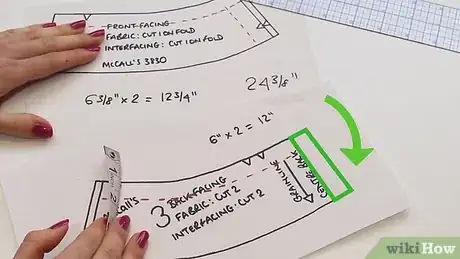 FRONT FACING
FABRIC: CUT ON FOLD
INTERFACING: CUT ON FOLD
McCALL'S 3830
6 3/8" x 2 = 12 3/4"
24 3/8"
6" x 2 = 12"
CENTRE BACK
GRAINLINE
3
BACK FACING
FABRIC: CUT 2
INTERFACING: CUT 2
wikiHow